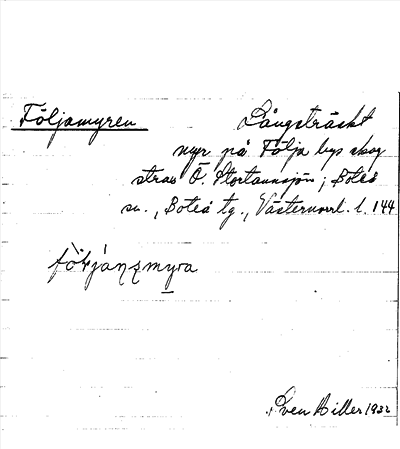 Följamyren Långsträckt
myr på Följa bys skog
strax Ö. Stortannsjön; Boteå
sn., Boteå tg., Västernorrl. l. 144
Sven Hiller 1932